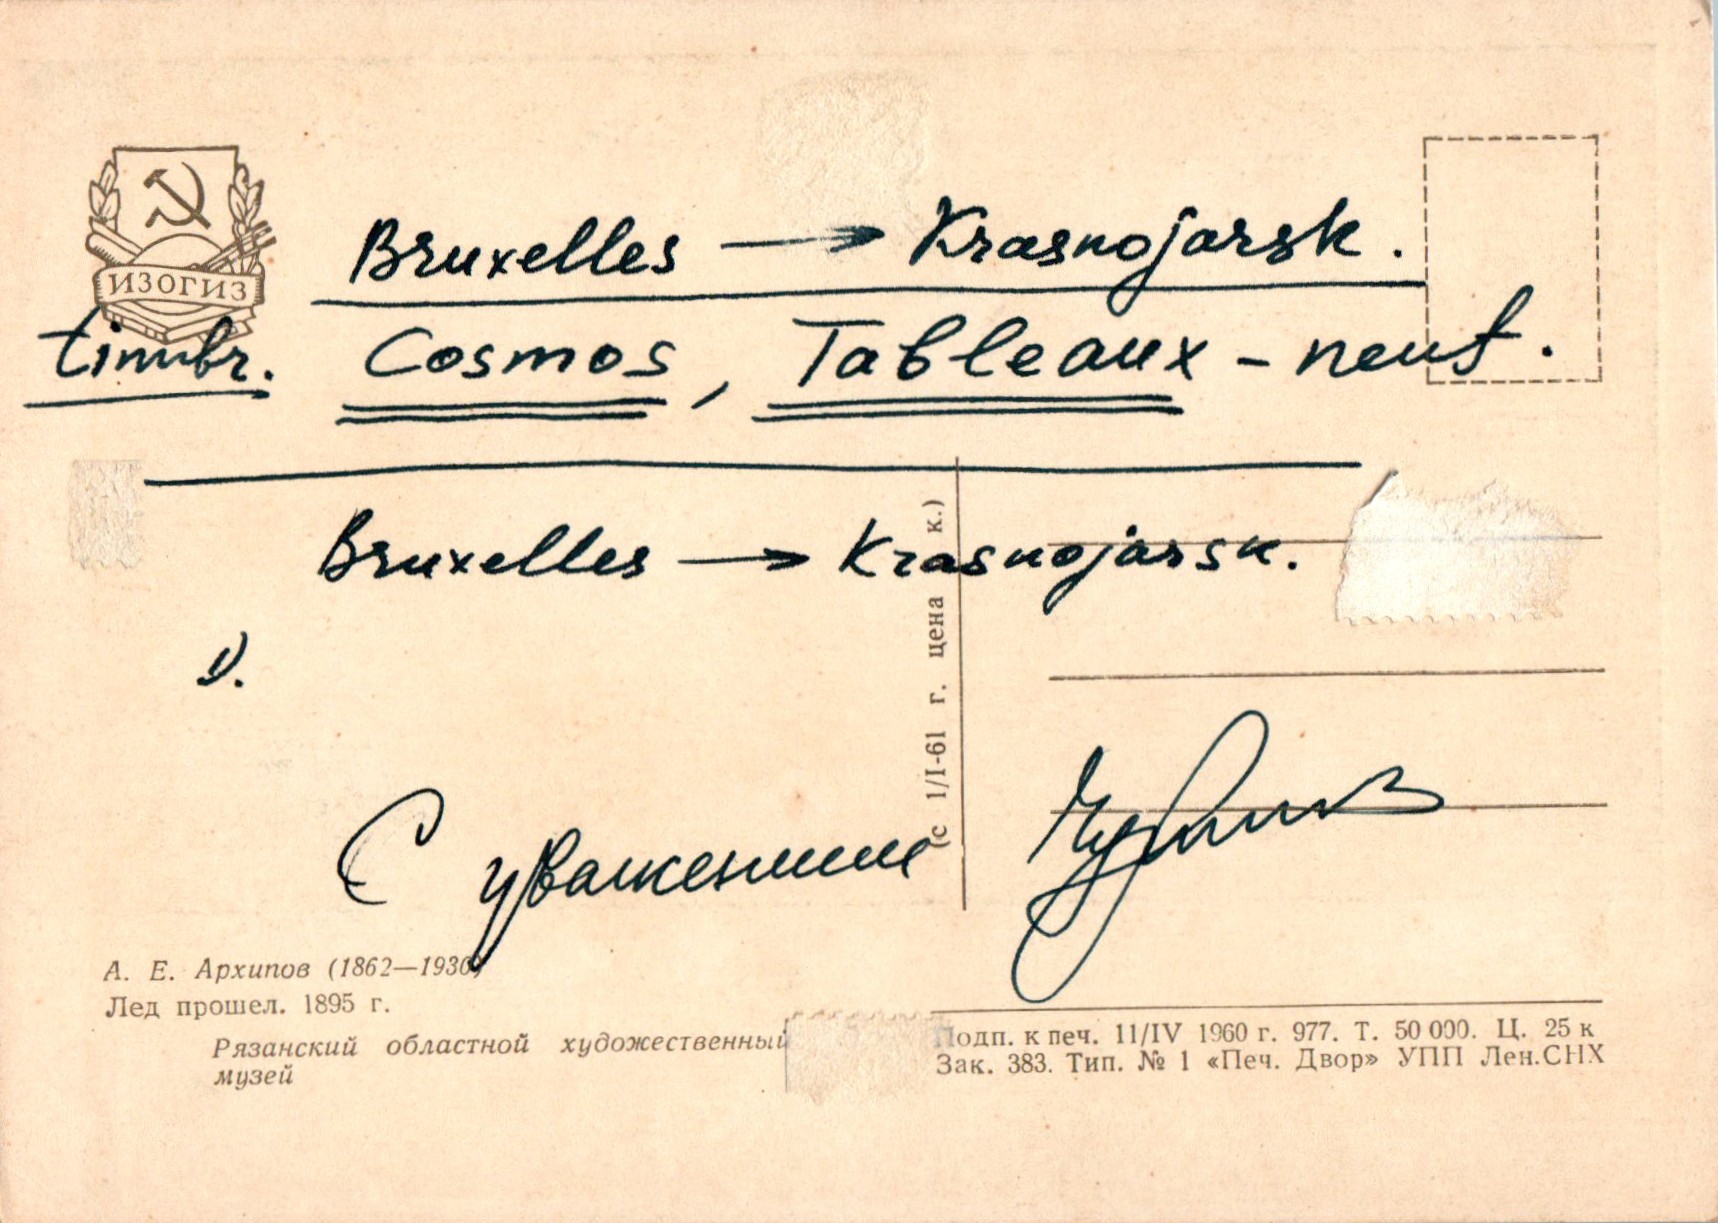 ИЗОГИЗ
Bruxelles → Krasnojarsk.
timbr. Cosmos, Tableaux - neuf.
Bruxelles → Krasnojarsk.
(с 1/I-61 г. цена к.)
С уважением
А. Е. Архипов (1862—1930)
Лед прошел. 1895 г.
Рязанский областной художественный
музей
Подп. к печ. 11/IV 1960 г. 977. Т. 50 000. Ц. 25 к
Зак. 383. Тип. № 1 «Печ. Двор» УПП Лен.СНХ